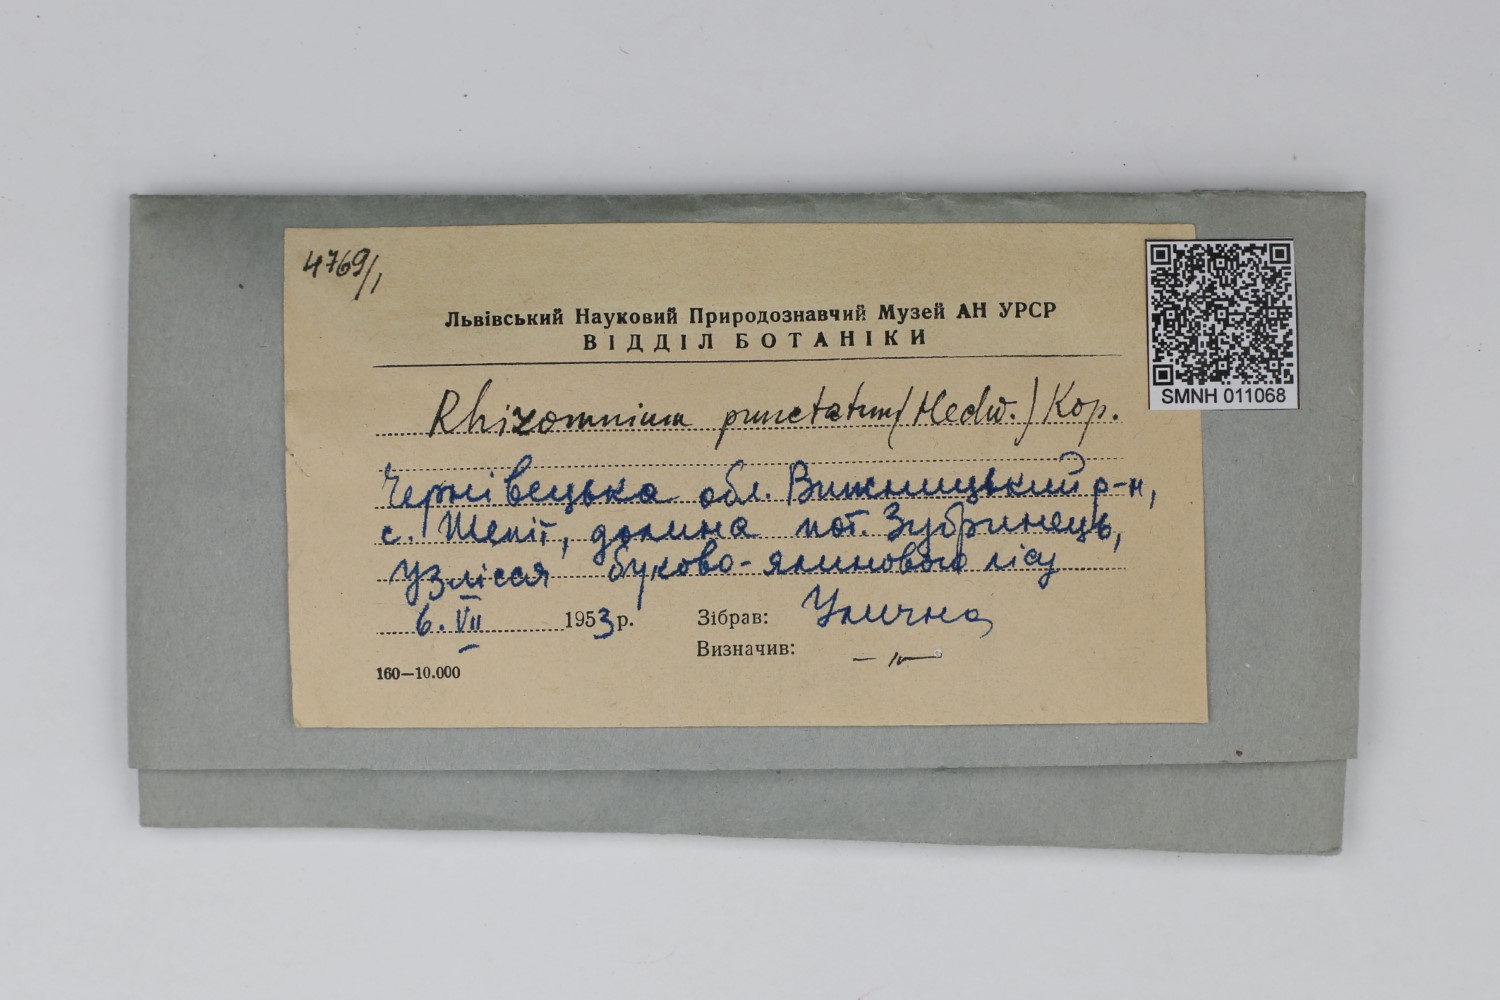 4769/1
Львівський Науковий Природознавчий Музей АН УРСР
ВІДДІЛ БОТАНІКИ
SMNH 011068
Rhizomnium punctatum (Hedw.) Kop.
Чернівецька обл. Вижницький р-н,
с. Шепіт, долина пот. Зубринець,
узлісся буково-ялинового лісу
6. VII 1953 р. Зібрав: Улична
Визначив: -"-
160—10.000